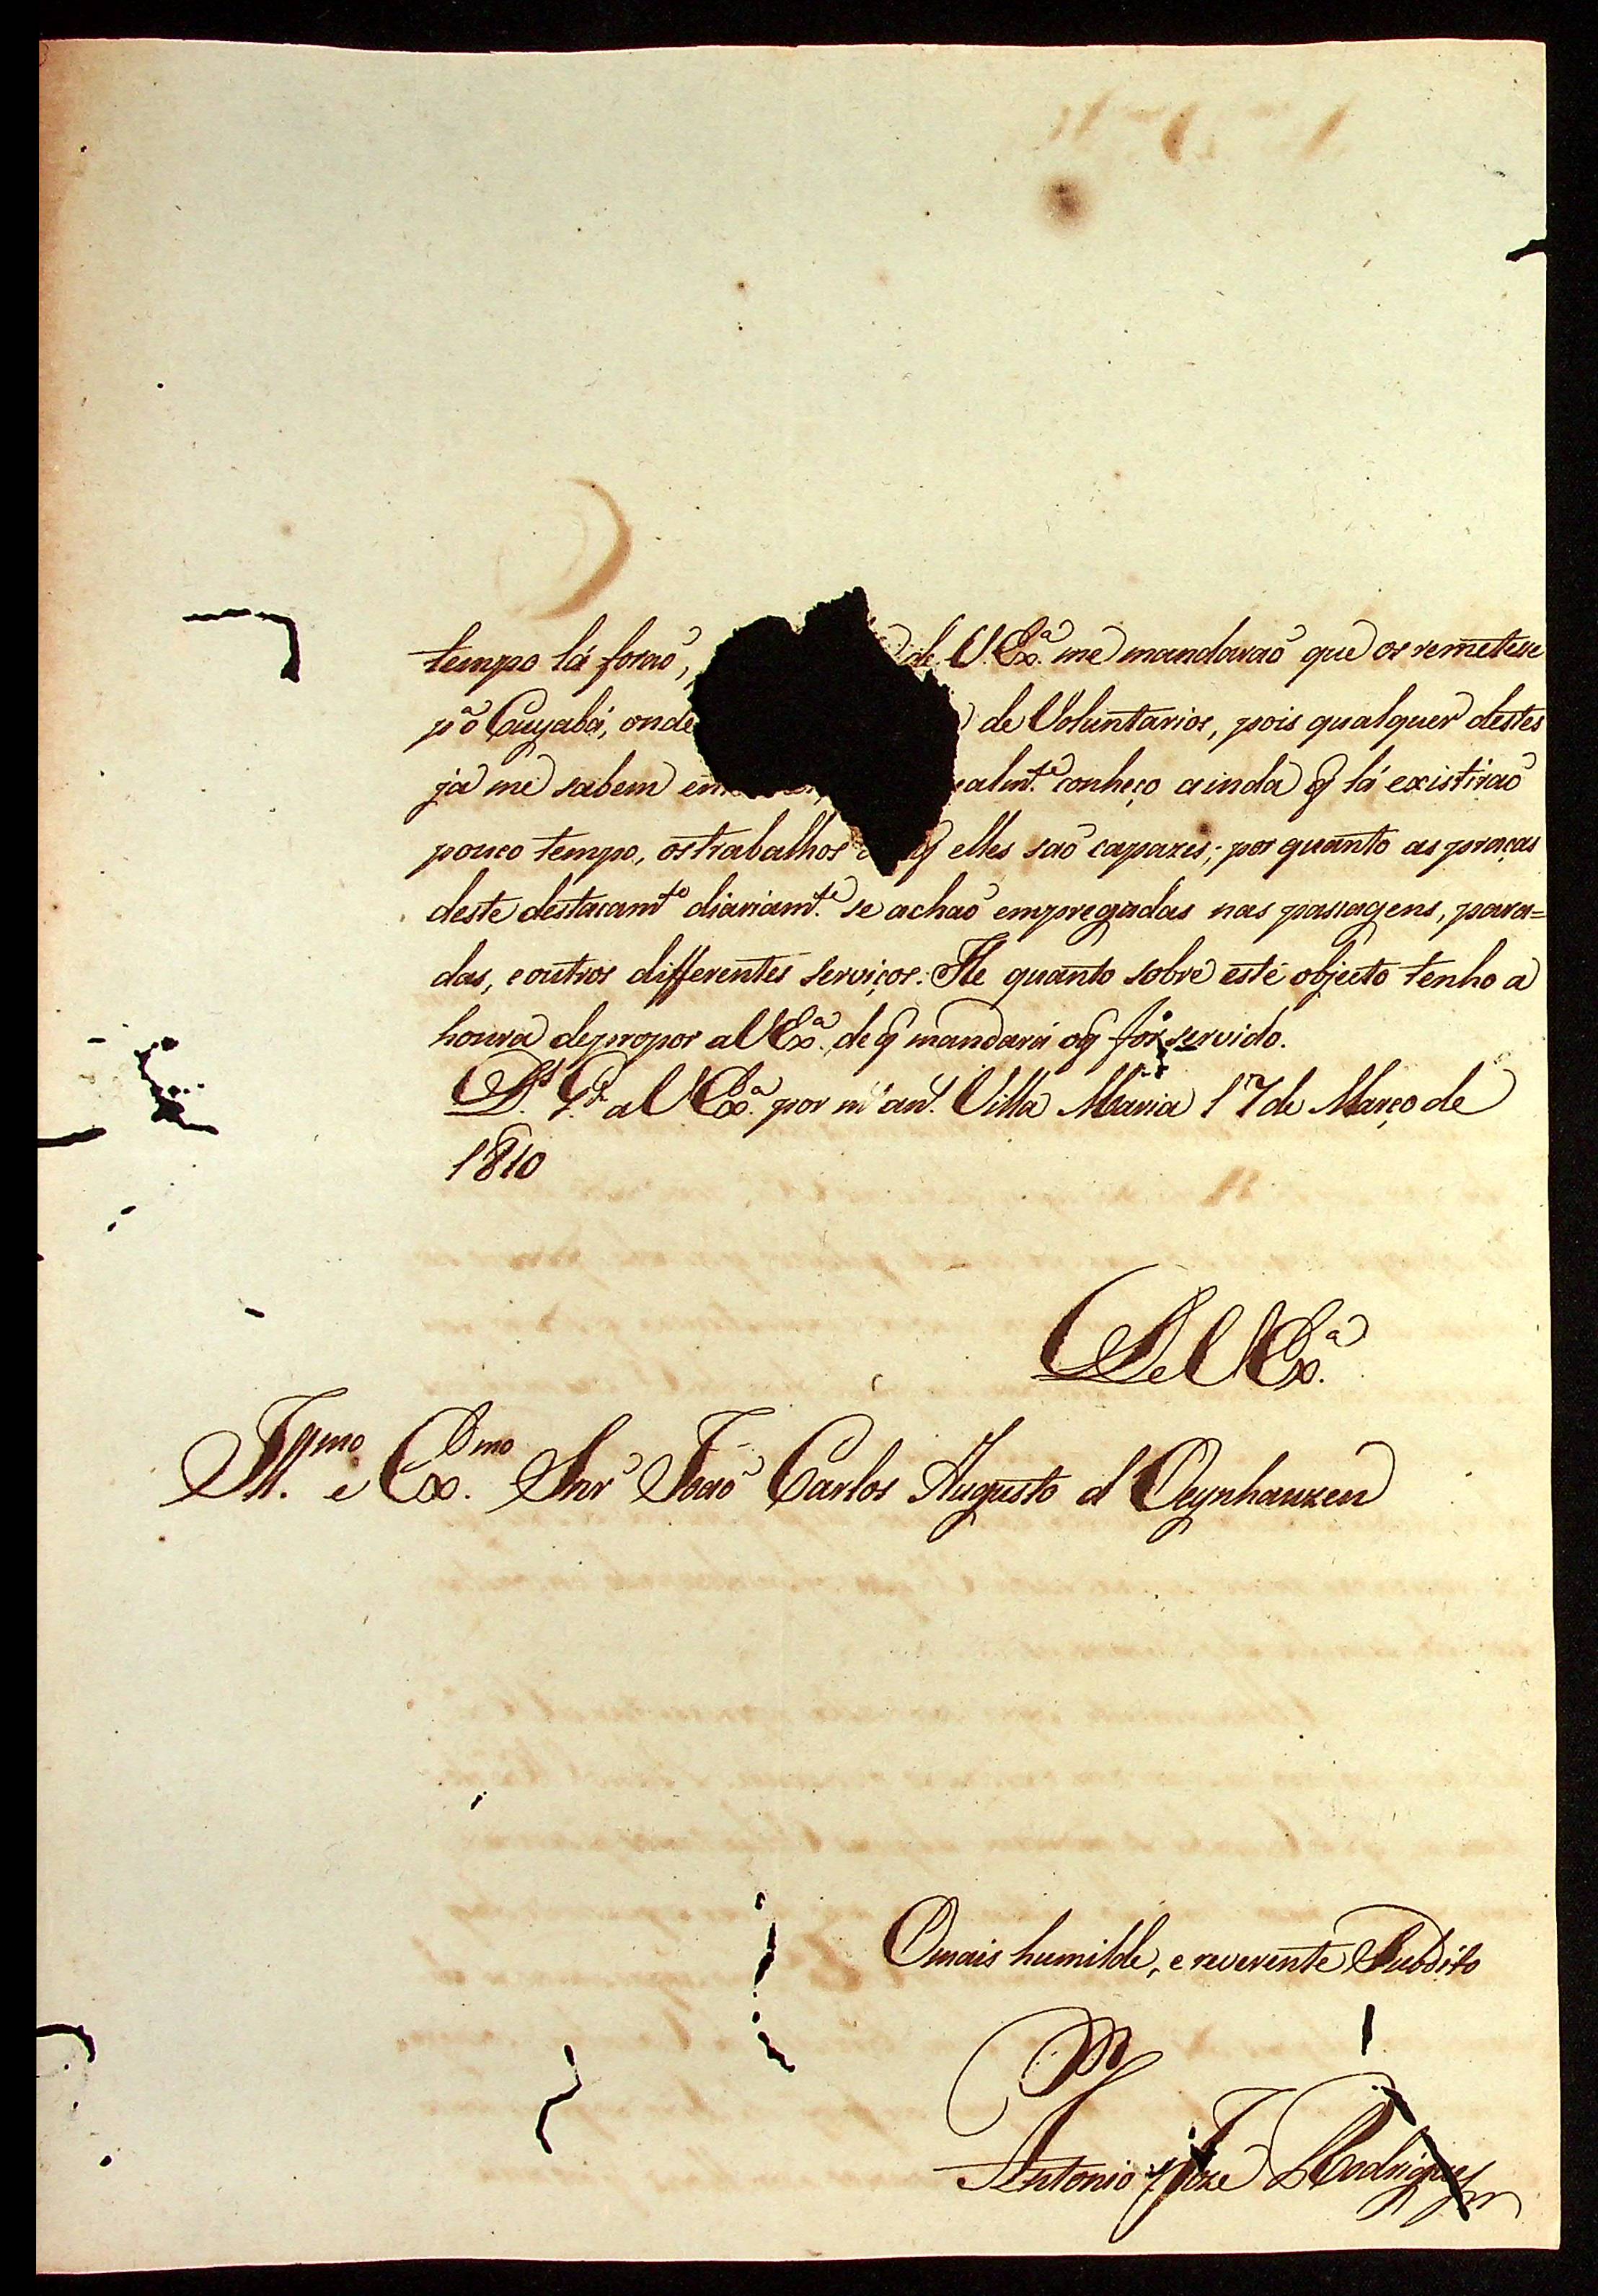 tempo lá foraõ, de V. Ex.ª me mandaraõ que os remetese
p.ª o Cuyabá, onde de Voluntarios, pois qualquer destes
ja me sabem conheço ainda q̃ lá existiraõ
pouco tempo, os trabalhos q̃ elles saõ capazes; por quanto as praças
deste destacam.to diariam.te se achaõ empregadas nas passagens, para=
das, e outros differentes serviços. He quanto sobre este objecto tenho a
honra de propor a V Ex.ª de q̃ mandará o q̃ for servido.
D.s G.de a V Ex.ª por m.s an.s Villa Maria 17 de Março de
1810
De V Ex.ª
Ill.mo e Ex.mo Snr Joaõ Carlos Augusto d'Oeynhauzen
O mais humilde, e reverente Subdito
Antonio Joze Rodrigues